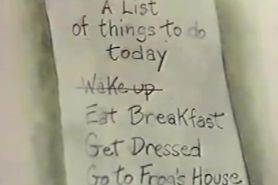 A List
of things to do
today
Wake up
Eat Breakfast
Get Dressed
Go to Frog's House